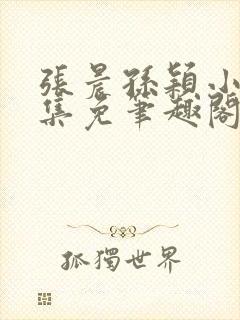 張晨孫穎小
集免筆趣閣
孤獨世界